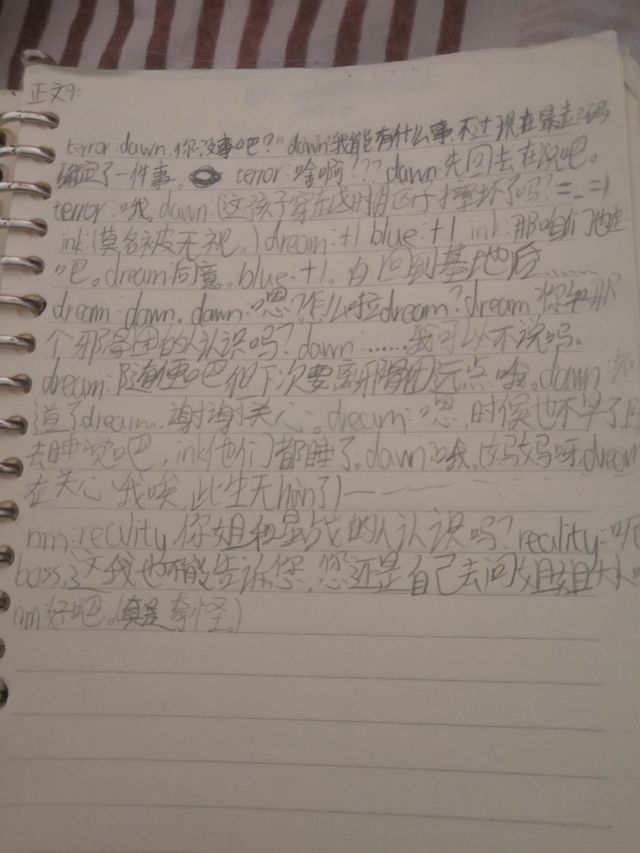 正文9:
terror:dawn,你没事吧?dawn:我能有什么事,不过现在暴走
确定了一件事。terror:啥啊???dawn:先回去在说吧。
terror:哦,dawn.(这孩子穿越时脑子摔坏了吗?=_=)
ink:(莫名被无视。)dream:+1 blue:+1 ink:那咱们也走
吧。dream:同意。blue:+1。白回到基地后……
dream:dawn。dawn:嗯?怎么啦dream?dream:你和那
个邪骨团的人认识吗?dawn:……我可以不说吗。
dream:随便吧但下次要离邪骨团远点哦。dawn:知
道了dream,谢谢关心。dream:嗯,时候也不早了,
去睡觉吧,ink他们都睡了。dawn:哦。(妈妈呀,dream
在关心我唉,此生无hàn了)——
nm:reality,你姐和星战的人认识吗?reality:呃
boss,这我也不能告诉您,您还是自己去问姐姐大人
nm:好吧。(真是奇怪。)